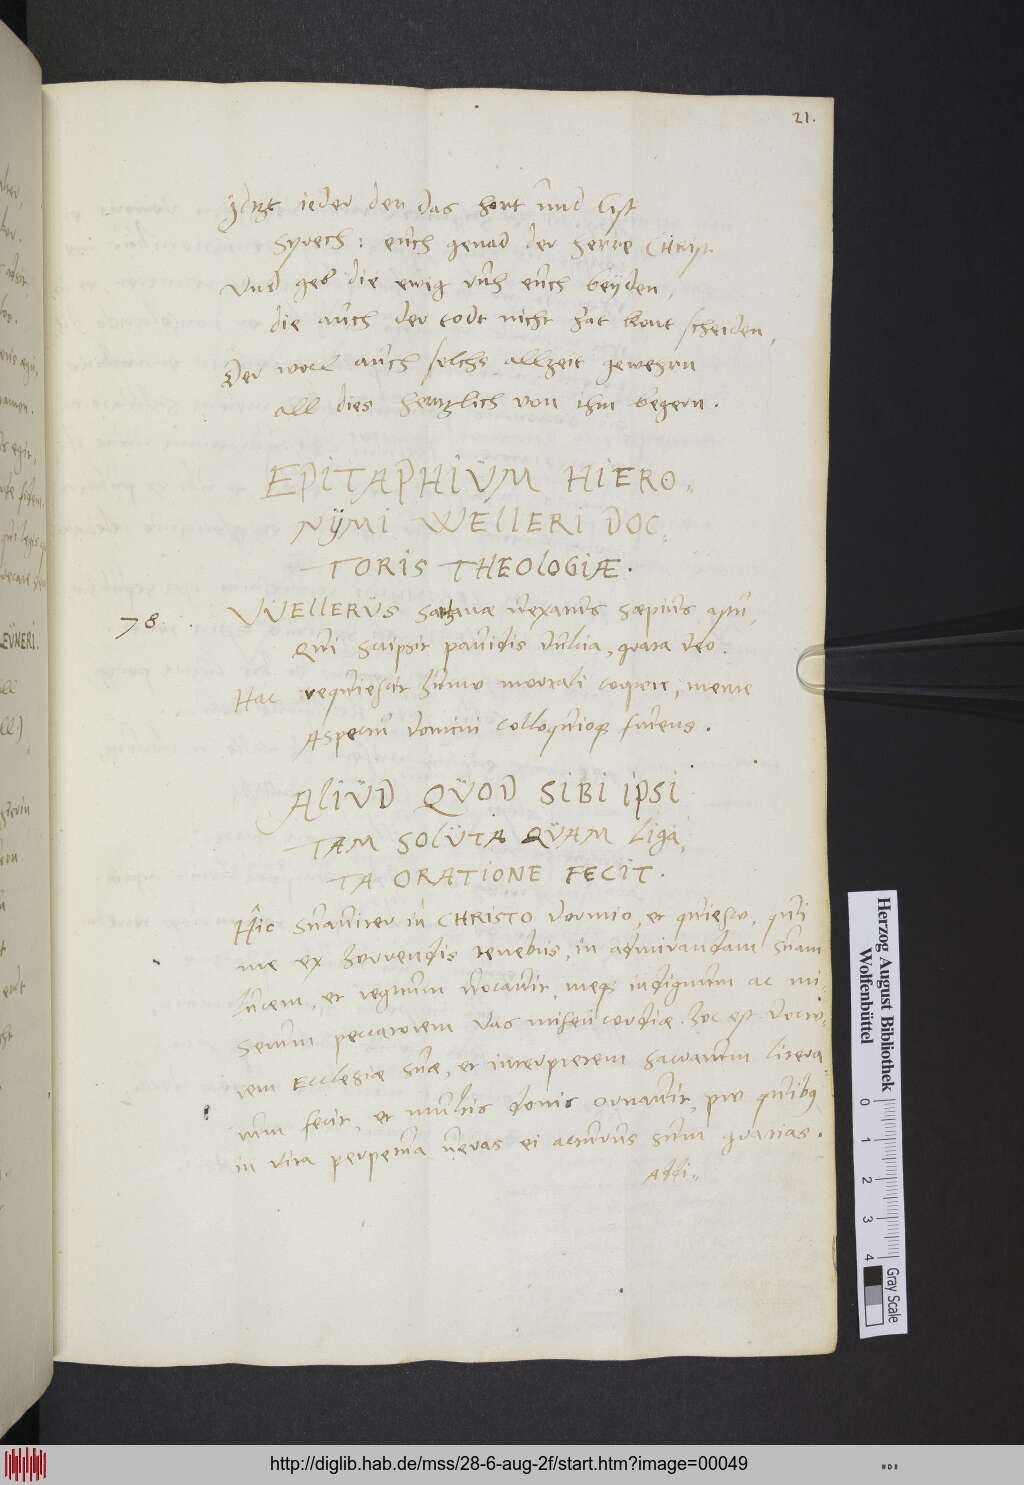 21.
Jdtzt ieder der das hort und list
Sprech: euch genad der Herre CHrist
Und geb die ewig ruh euch beÿden,
die auch der todt nicht hat kont scheiden,
Der woll auch solchs allzeit gewehrn
all dies hertzlich von ihm begern.
EPITAPHIUM HIERO=
NYMI WELLERI DOC=
TORIS THEOLOGIÆ.
78. WELLERUS Satanæ vexatus sæpius astu,
Qui scripsit pavidis dulcia, grata Deo.
Hac requiescit humo mortali corpore, mente
Aspectu domini colloquioq fruens.
ALIUD QUOD SIBI IPSI
TAM SOLUTA QUAM LIGA=
TA ORATIONE FECIT.
Hîc suaviter in CHRISTO dormio, et quiesco, qui
me ex horrendis tenebris, in admirandam suam
lucem, et regnum vocavit, meq indignum ac mi=
serum peccatorem vas misericordiæ hoc est doctо=
rem Ecclesiæ suæ, et interpretem sacrarum litera=
rum fecit, et multis donis ornavit, pro quibq
in vita perpetua veras ei acturus sum gratias.
Addi=
EUNERI.
Herzog August Bibliothek
Wolfenbüttel
0 1 2 3 4
Gray Scale
http://diglib.hab.de/mss/28-6-aug-2f/start.htm?image=00049